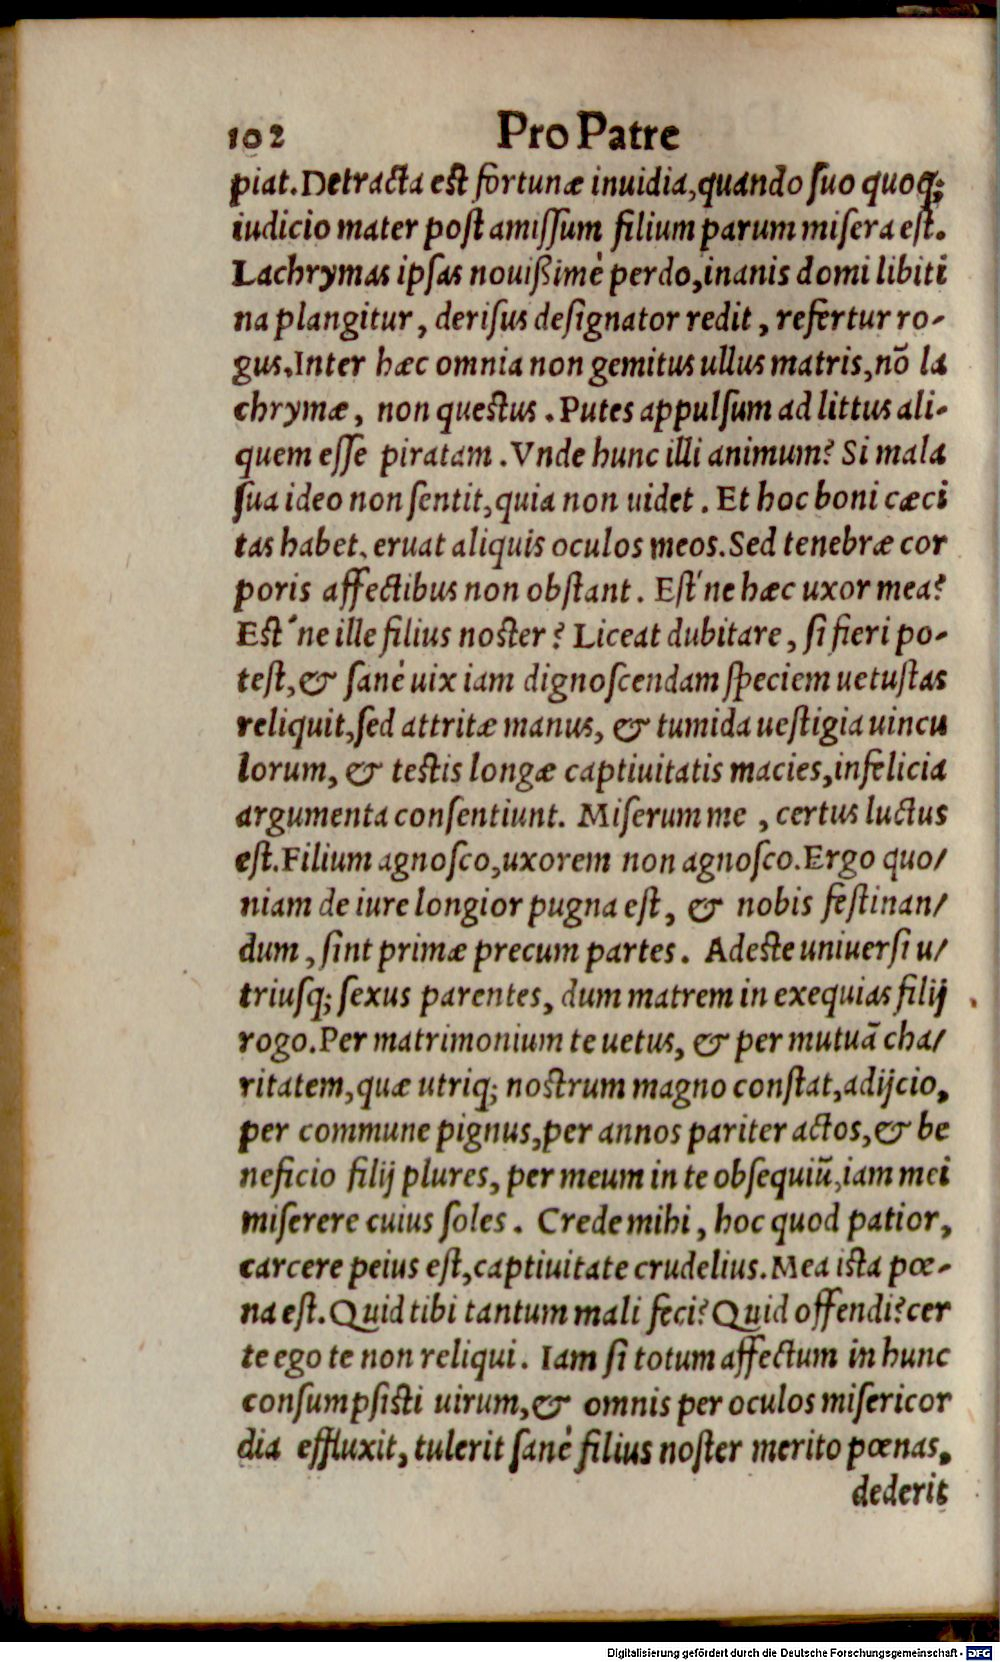 102 Pro Patre
piat. Detracta est fortunæ inuidia, quando suo quoq;
iudicio mater post amissum filium parum misera est.
Lachrymas ipsas nouißimè perdo, inanis domi libiti
na plangitur, derisus designator redit, refertur ro-
gus. Inter hæc omnia non gemitus ullus matris, nõ la
chrymæ, non questus. Putes appulsum ad littus ali-
quem esse piratam. Vnde hunc illi animum? Si mala
sua ideo non sentit, quia non uidet. Et hoc boni cæci
tas habet, eruat aliquis oculos meos. Sed tenebræ cor
poris affectibus non obstant. Est´ne hæc uxor mea?
Est´ne ille filius noster? Liceat dubitare, si fieri po-
test, & sanè uix iam dignoscendam speciem uetustas
reliquit, sed attritæ manus, & tumida uestigia uincu
lorum, & testis longæ captiuitatis macies, infelicia
argumenta consentiunt. Miserum me, certus luctus
est. Filium agnosco, uxorem non agnosco. Ergo quo/
niam de iure longior pugna est, & nobis festinan/
dum, sint primæ precum partes. Adeste uniuersi u/
triusq; sexus parentes, dum matrem in exequias filij
rogo. Per matrimonium te uetus, & per mutuã cha/
ritatem, quæ utriq; nostrum magno constat, adijcio,
per commune pignus, per annos pariter actos, & be
neficio filij plures, per meum in te obsequiũ, iam mei
miserere cuius soles. Crede mihi, hoc quod patior,
carcere peius est, captiuitate crudelius. Mea ista pœ-
na est. Quid tibi tantum mali feci? Quid offendi? cer
te ego te non reliqui. Iam si totum affectum in hunc
consumpsisti uirum, & omnis per oculos misericor
dia effluxit, tulerit sanè filius noster merito pœnas,
dederit
Digitalisierung gefördert durch die Deutsche Forschungsgemeinschaft - DFG